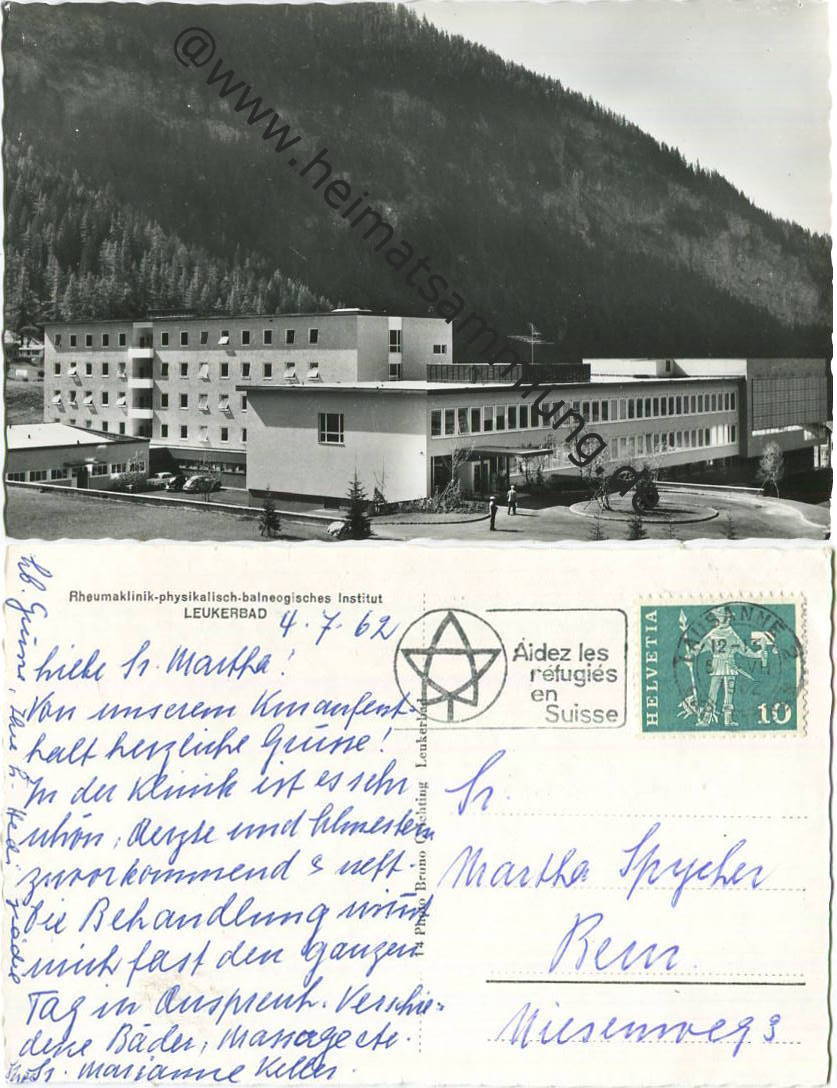 @www.heimatsammlung.de
Rheumaklinik-physikalisch-balneogisches Institut
LEUKERBAD
4.7.62
Liebe Sr. Martha!
Von unserem Kuraufent-
halt herzliche Grüsse!
In der Klinik ist es sehr
schön, Aerzte und Schwestern
zuvorkommend & nett.
Die Behandlung nimmt
mich fast den ganzen
Tag in Anspruch. Verschie-
dene Bäder, Massage etc.
Sr. Marianne Keller.
lb. Grüsse, Ihre
Photo Bruno Leukerbad
Aidez les
réfugiés
en
Suisse
LAUSANNE 2
HELVETIA
10
Sr.
Martha Spycher
Bern
Niesenweg 3